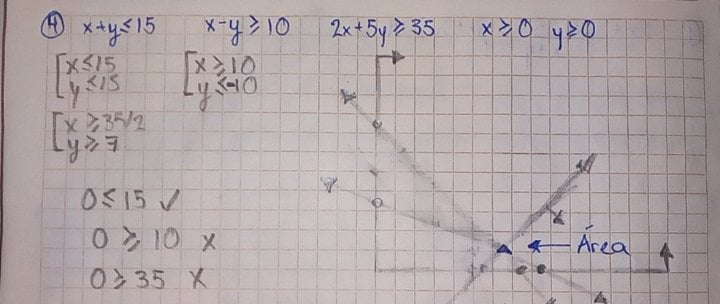 4 x+y≤15 x-y≥10 2x+5y≥35 x≥0 y≥0
x≤15 x≥10
y≤15 y≤-10
x≥35/2
y≥7
0≤15 ✓
0≥10 x
0≥35 x
Área